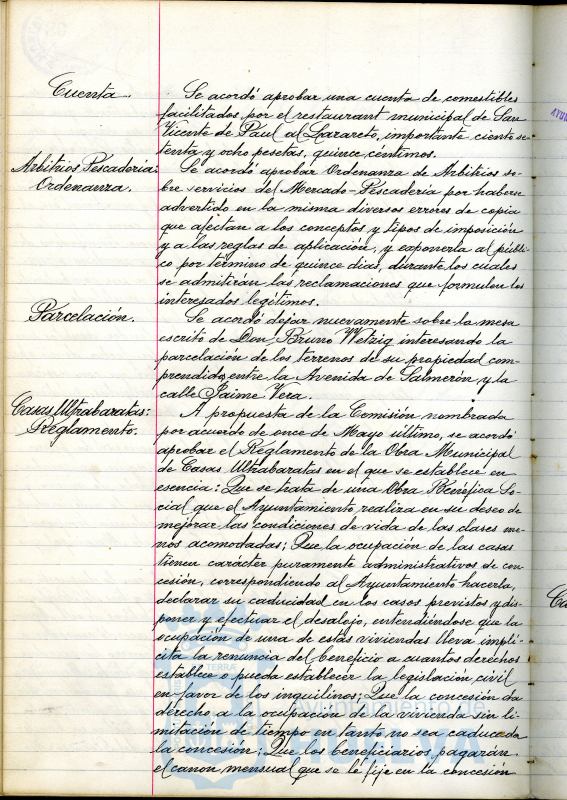 Cuenta.
Se acordó aprobar una cuenta de comestibles
facilitados, por el restaurant municipal de San
Vicente de Paul al Lazareto, importante ciento se-
tenta y ocho pesetas, quince céntimos.
Arbitrios Pescadería:
Ordenanza.
Se acordó aprobar Ordenanza de Arbitrios so-
bre servicios del Mercado-Pescadería por haberse
advertido en la misma diversos errores de copia
que afectan a los conceptos y tipos de imposición
y a las reglas de aplicación, y exponerla al públi-
co por término de quince días, durante los cuales
se admitirán las reclamaciones que formulen los
interesados legítimos.
Parcelación.
Se acordó dejar nuevamente sobre la mesa
escrito de Don Bruno Wetzig interesando la
parcelación de los terrenos de su propiedad com-
prendidos entre la Avenida de Salmerón y la
calle Jaime Vera.
Casas Ultrabaratas:
Reglamento.
A propuesta de la Comisión nombrada
por acuerdo de once de Mayo último, se acordó
aprobar el Reglamento de la Obra Municipal
de Casas Ultrabaratas en el que se establece en
esencia: Que se trata de una Obra Benéfica So-
cial que el Ayuntamiento realiza en su deseo de
mejorar las condiciones de vida de las clases me-
nos acomodadas; Que la ocupación de las casas
tienen carácter puramente administrativos de con-
cesión, correspondiendo al Ayuntamiento hacerla,
declarar su caducidad en los casos previstos y dis-
poner y efectuar el desalojo, entendiéndose que la
ocupación de una de estas viviendas lleva implí-
cita la renuncia del beneficio a cuantos derechos
establece o pueda establecer la legislación civil
en favor de los inquilinos; Que la concesión da
derecho a la ocupación de la vivienda sin li-
mitación de tiempo en tanto no sea caducada
la concesión; Que los beneficiarios pagarán
el canon mensual que se le fije en la concesión
Ayuntamiento de
HUELVA